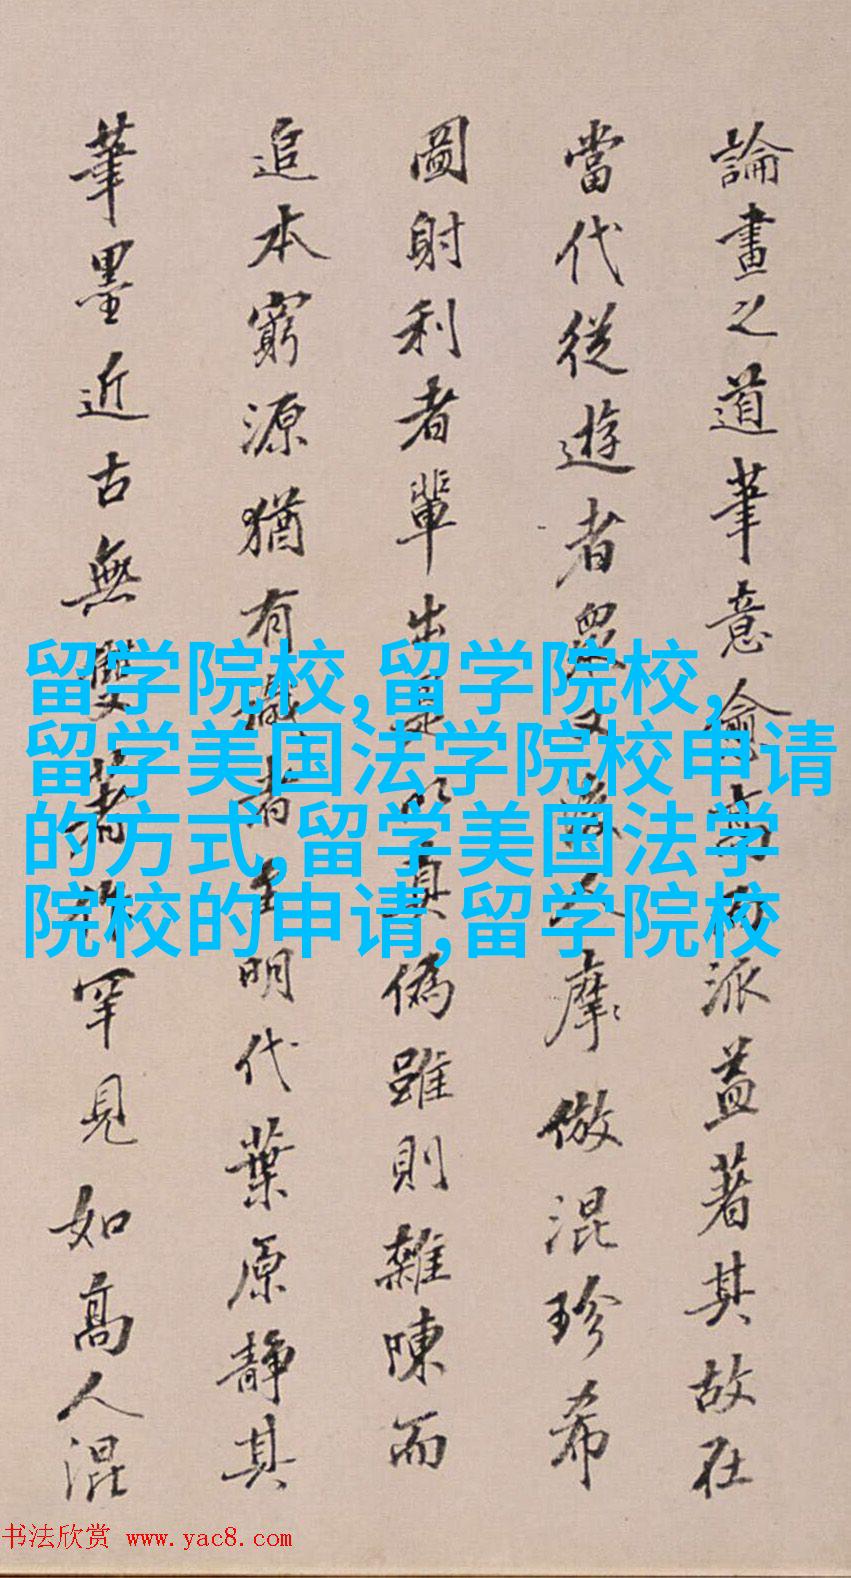 論畫之道筆意愈高而派益著其故在
當代從遊者眾又後人摩倣混珍希
圖射利者輩出是以真偽雖則雜陳而
追本窮源猶有識者在明代葉原靜其
筆墨近古無雙著作罕見如高人混
留学院校,留学院校,
留学美国法学院校申请
的方式,留学美国法学
院校的申请,留学院校
书法欣赏 www.yac8.com